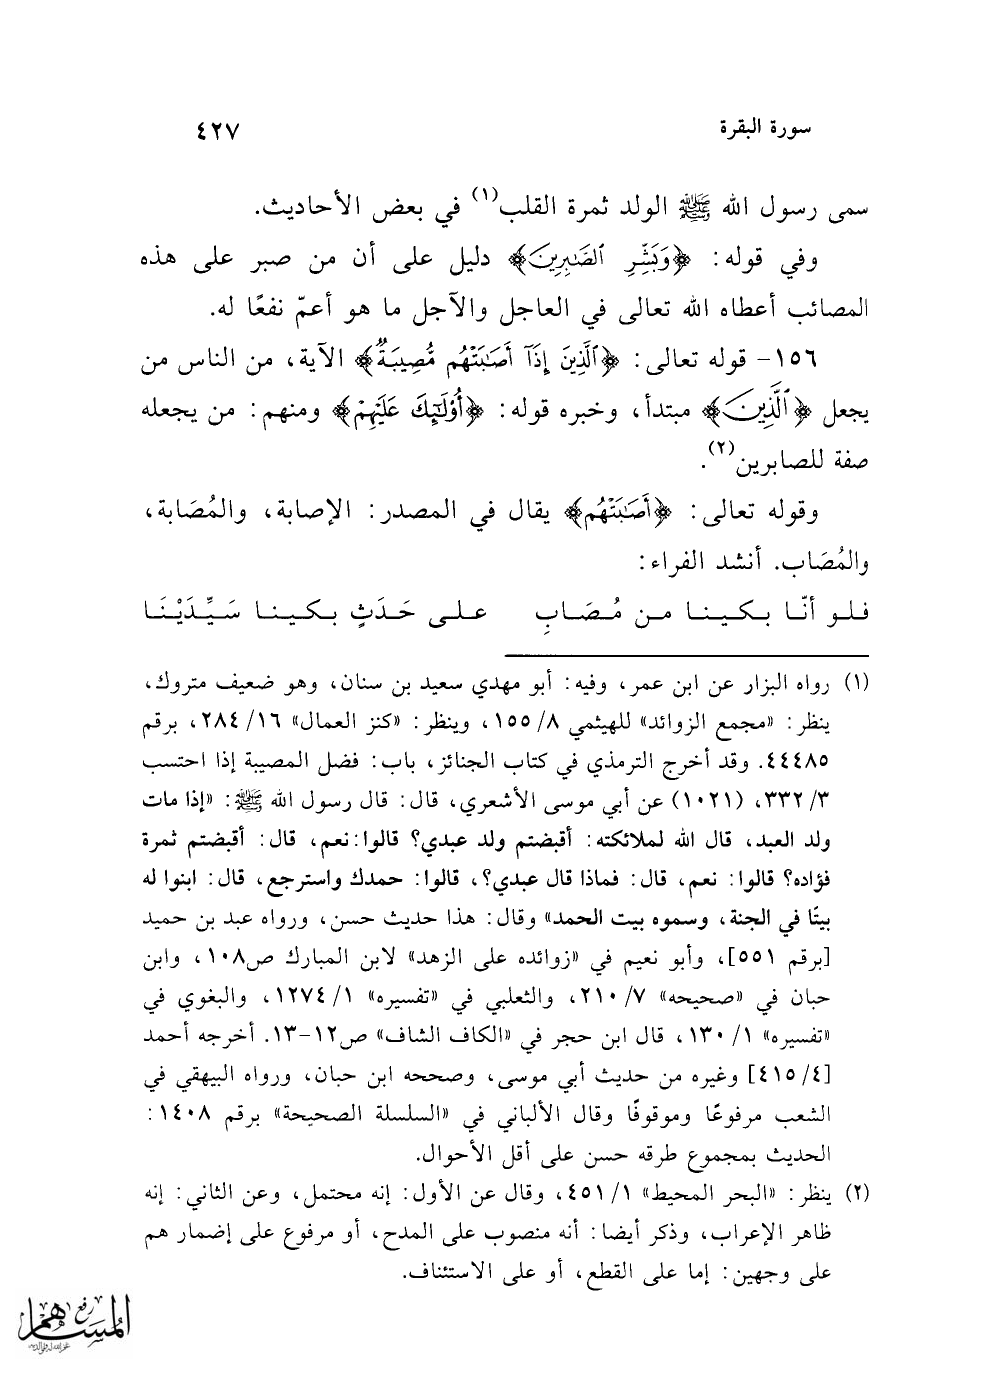 سورة البقرة ٤٢٧
سمى رسول الله ﷺ الولد ثمرة القلب(١) في بعض الأحاديث.
وفي قوله: ﴿وَبَشِّرِ ٱلصَّٰبِرِينَ﴾ دليل على أن من صبر على هذه
المصائب أعطاه الله تعالى في العاجل والآجل ما هو أعمّ نفعًا له.
١٥٦- قوله تعالى: ﴿ٱلَّذِينَ إِذَآ أَصَٰبَتۡهُم مُّصِيبَةٞ﴾ الآية، من الناس من
يجعل ﴿ٱلَّذِينَ﴾ مبتدأ، وخبره قوله: ﴿أُوْلَٰٓئِكَ عَلَيۡهِمۡ﴾ ومنهم: من يجعله
صفة للصابرين(٢).
وقوله تعالى: ﴿أَصَٰبَتۡهُم﴾ يقال في المصدر: الإصابة، والمُصَابة،
والمُصَاب. أنشد الفراء:
فلو أنّا بكينا من مُصَابِ على حَدَثٍ بكينا سَيِّدَيْنَا
(١) رواه البزار عن ابن عمر، وفيه: أبو مهدي سعيد بن سنان، وهو ضعيف متروك،
ينظر: «مجمع الزوائد» للهيثمي ٨/ ١٥٥، وينظر: «كنز العمال» ١٦/ ٢٨٤، برقم
٤٤٤٨٥. وقد أخرج الترمذي في كتاب الجنائز، باب: فضل المصيبة إذا احتسب
٣/ ٣٣٢، (١٠٢١) عن أبي موسى الأشعري، قال: قال رسول الله ﷺ: «إذا مات
ولد العبد، قال الله لملائكته: أقبضتم ولد عبدي؟ قالوا: نعم، قال: أقبضتم ثمرة
فؤاده؟ قالوا: نعم، قال: فماذا قال عبدي؟، قالوا: حمدك واسترجع، قال: ابنوا له
بيتًا في الجنة، وسموه بيت الحمد» وقال: هذا حديث حسن، ورواه عبد بن حميد
[برقم ٥٥١]، وأبو نعيم في «زوائده على الزهد» لابن المبارك ص١٠٨، وابن
حبان في «صحيحه» ٧/ ٢١٠، والثعلبي في «تفسيره» ١/ ١٢٧٤، والبغوي في
«تفسيره» ١/ ١٣٠، قال ابن حجر في «الكاف الشاف» ص١٢-١٣. أخرجه أحمد
[٤/ ٤١٥] وغيره من حديث أبي موسى، وصححه ابن حبان، ورواه البيهقي في
الشعب مرفوعًا وموقوفًا وقال الألباني في «السلسلة الصحيحة» برقم ١٤٠٨:
الحديث بمجموع طرقه حسن على أقل الأحوال.
(٢) ينظر: «البحر المحيط» ١/ ٤٥١، وقال عن الأول: إنه محتمل، وعن الثاني: إنه
ظاهر الإعراب، وذكر أيضا: أنه منصوب على المدح، أو مرفوع على إضمار هم
على وجهين: إما على القطع، أو على الاستئناف.